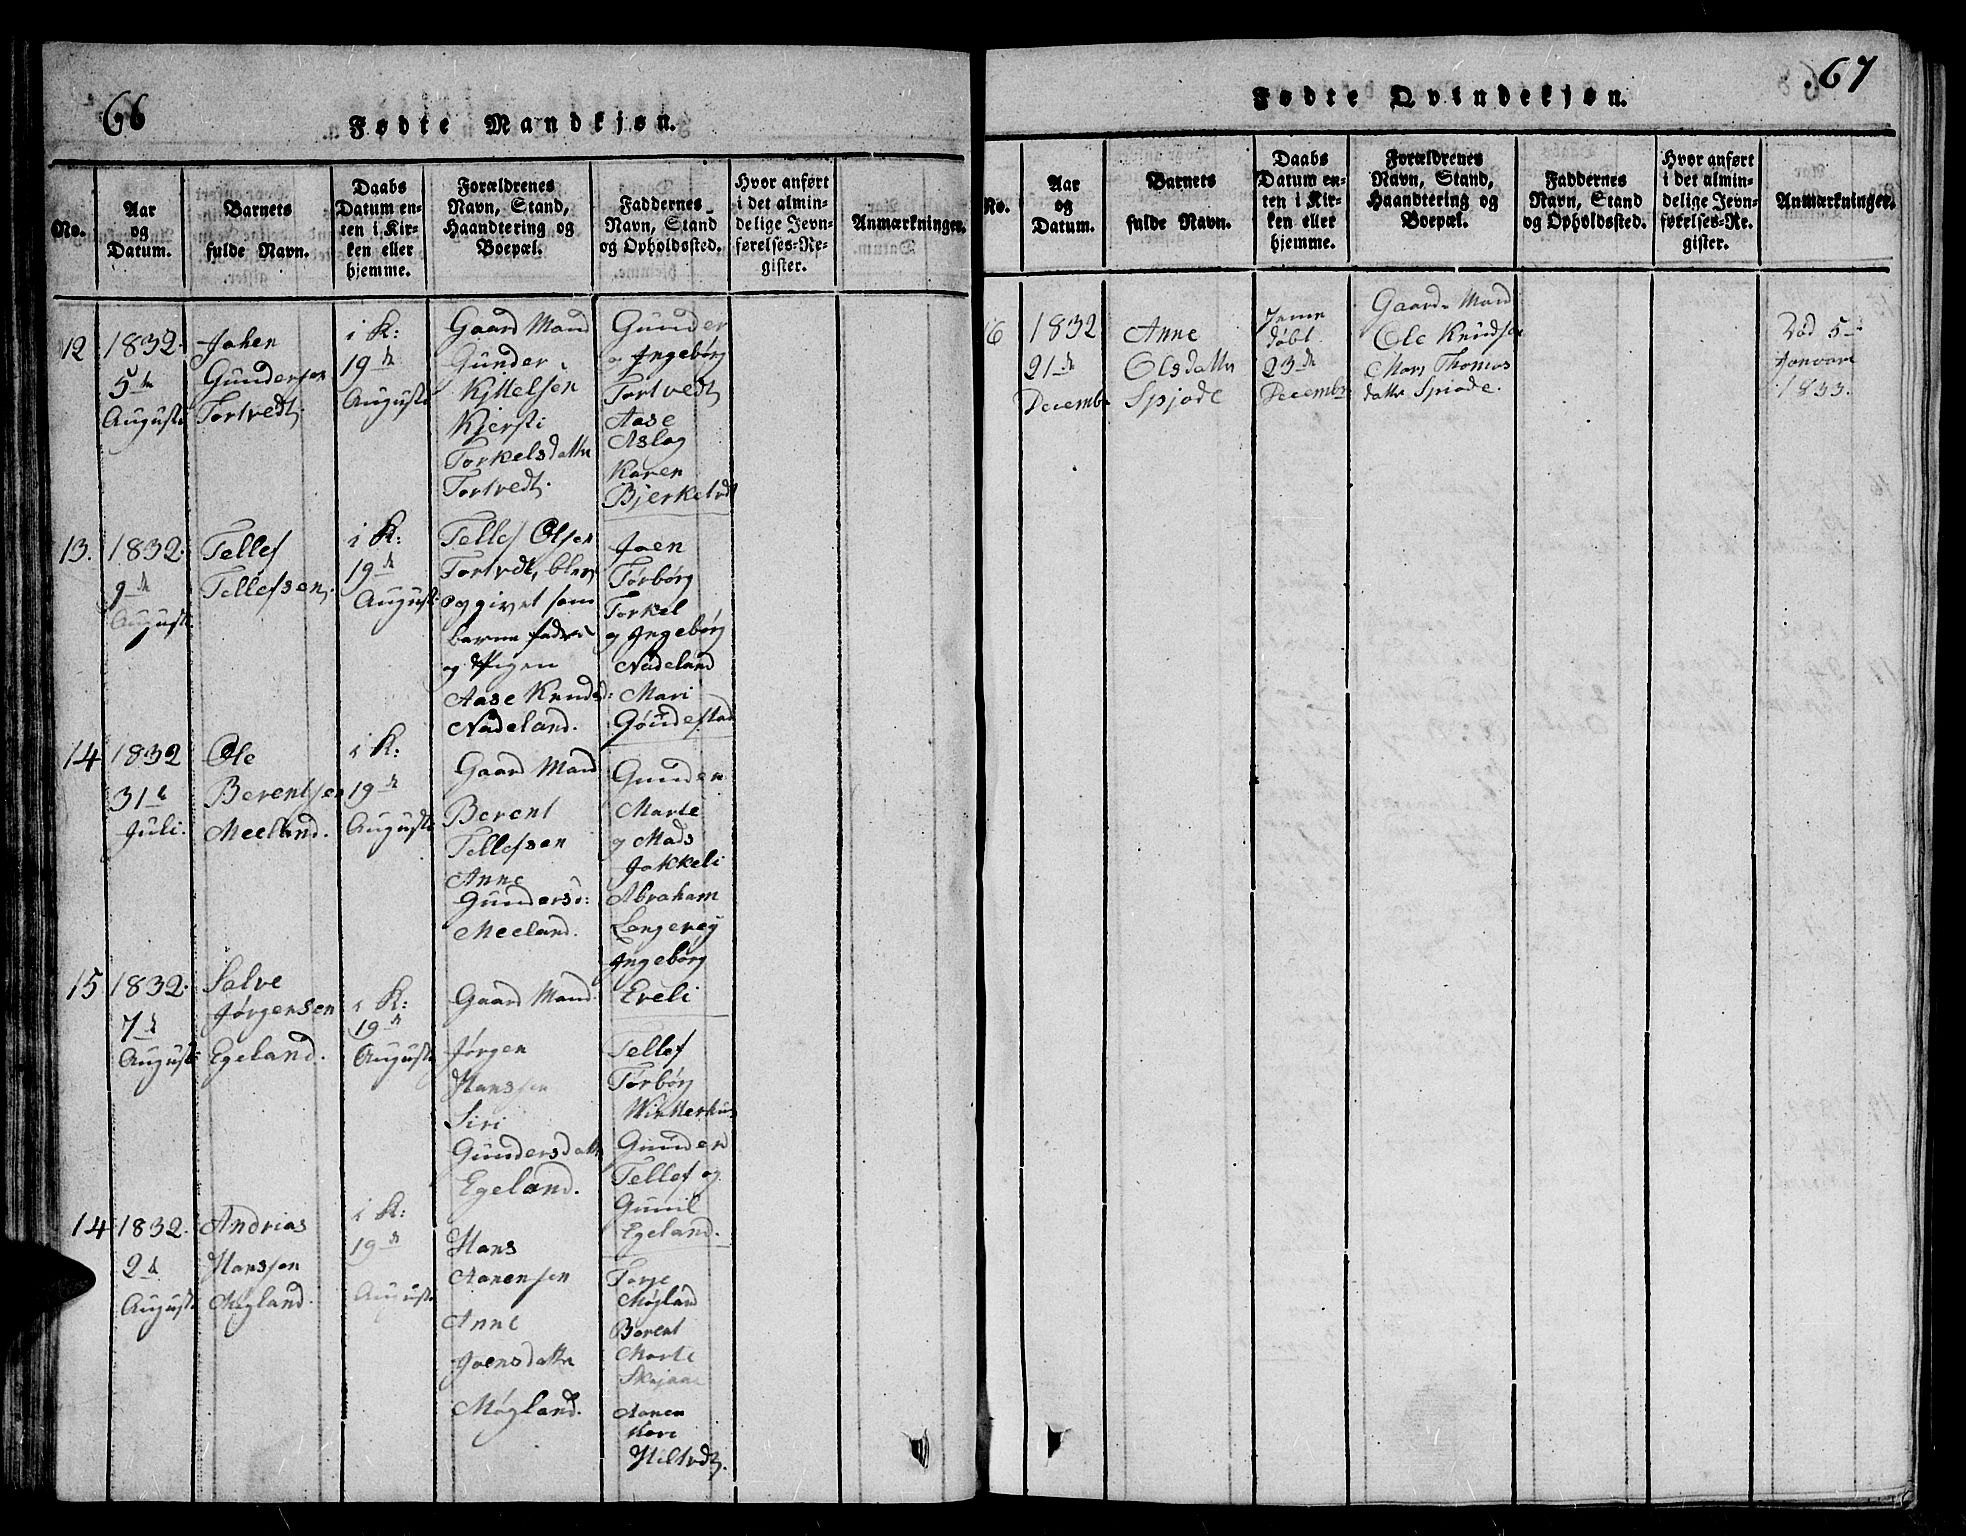 66
Fødte Mandkjøn.
No.
Aar
og
Datum.
Barnets
fulde Navn.
Daabs
Datum en-
ten i Kir-
ken eller
hjemme.
Forældrenes
Navn, Stand,
Haandtering og
Boepæl.
Faddernes
Navn, Stand
og Opholdssted.
Hvor anført
i det almin-
delige Jevn-
førelses-Re-
gister.
Anmærkninger.
12
1832.
5te
August
Johen
Gundersen
Tortvedt.
i K:
19de
August
Gaard Mand
Gunder
Kjttelsen
Kjersti
Torkelsdatter
Tortvedt.
Gunder
og Ingebørg
Tortvedt
Aase
Aslag
Karen
Bjerketvdt
13.
1832.
9de
August
Tellef
Tellefsen
i K:
19de
August
Tellef Olsen
Tortvdt,
opgivet som
barne fader
og Pigen
Aase Knudsd:
Nadeland.
Joen
Torbørg
Torkel
og Ingebørg
Nadeland
Mari
Goudestad
14
1832
31te
Juli.
Ole
Berentsen
Meeland.
i K:
19de
August
Gaard Mand
Berent
Tellefsen
Anne
Gundersd:
Meeland.
Gunder
Marte
og Mads
Jokkeli
Abraham
Longerej
Ingebørg
Eveli
15
1832.
7de
August
Salve
Jørgensen
Egeland.
i K:
19de
August
Gaard Mand
Jørgen
Hanssen
Siri
Gundersdatter
Egeland.
Tellef
Torbørg
Winterhus
Gunder
Tellef og
Gunil
Egeland.
14
1832.
2de
August
Andrias
Hanssen
Møgland.
i K:
19de
August
Hans
Aanensen
Anne
Joensdatter
Møgland.
Torje
Møgland
Berent
Marte
Skejaae
Aanen
Kari
Hiltvdt.
67
Fødte Qvindekjøn.
No.
Aar
og
Datum.
Barnets
fulde Navn.
Daabs
Datum en-
ten i Kir-
ken eller
hjemme.
Forældrenes
Navn, Stand,
Haandtering og
Boepæl.
Faddernes
Navn, Stand
og Opholdssted.
Hvor anført
i det almin-
delige Jevn-
førelses-Re-
gister.
Anmærkninger.
6
1832
21de
Decembr
Anne
Olsdatter
Spjode
døbt
23de
Decembr
Gaard Mand
Ole Knudsen
Mari Thomas
datter Spiode.
Død 5te
Januari
1833.